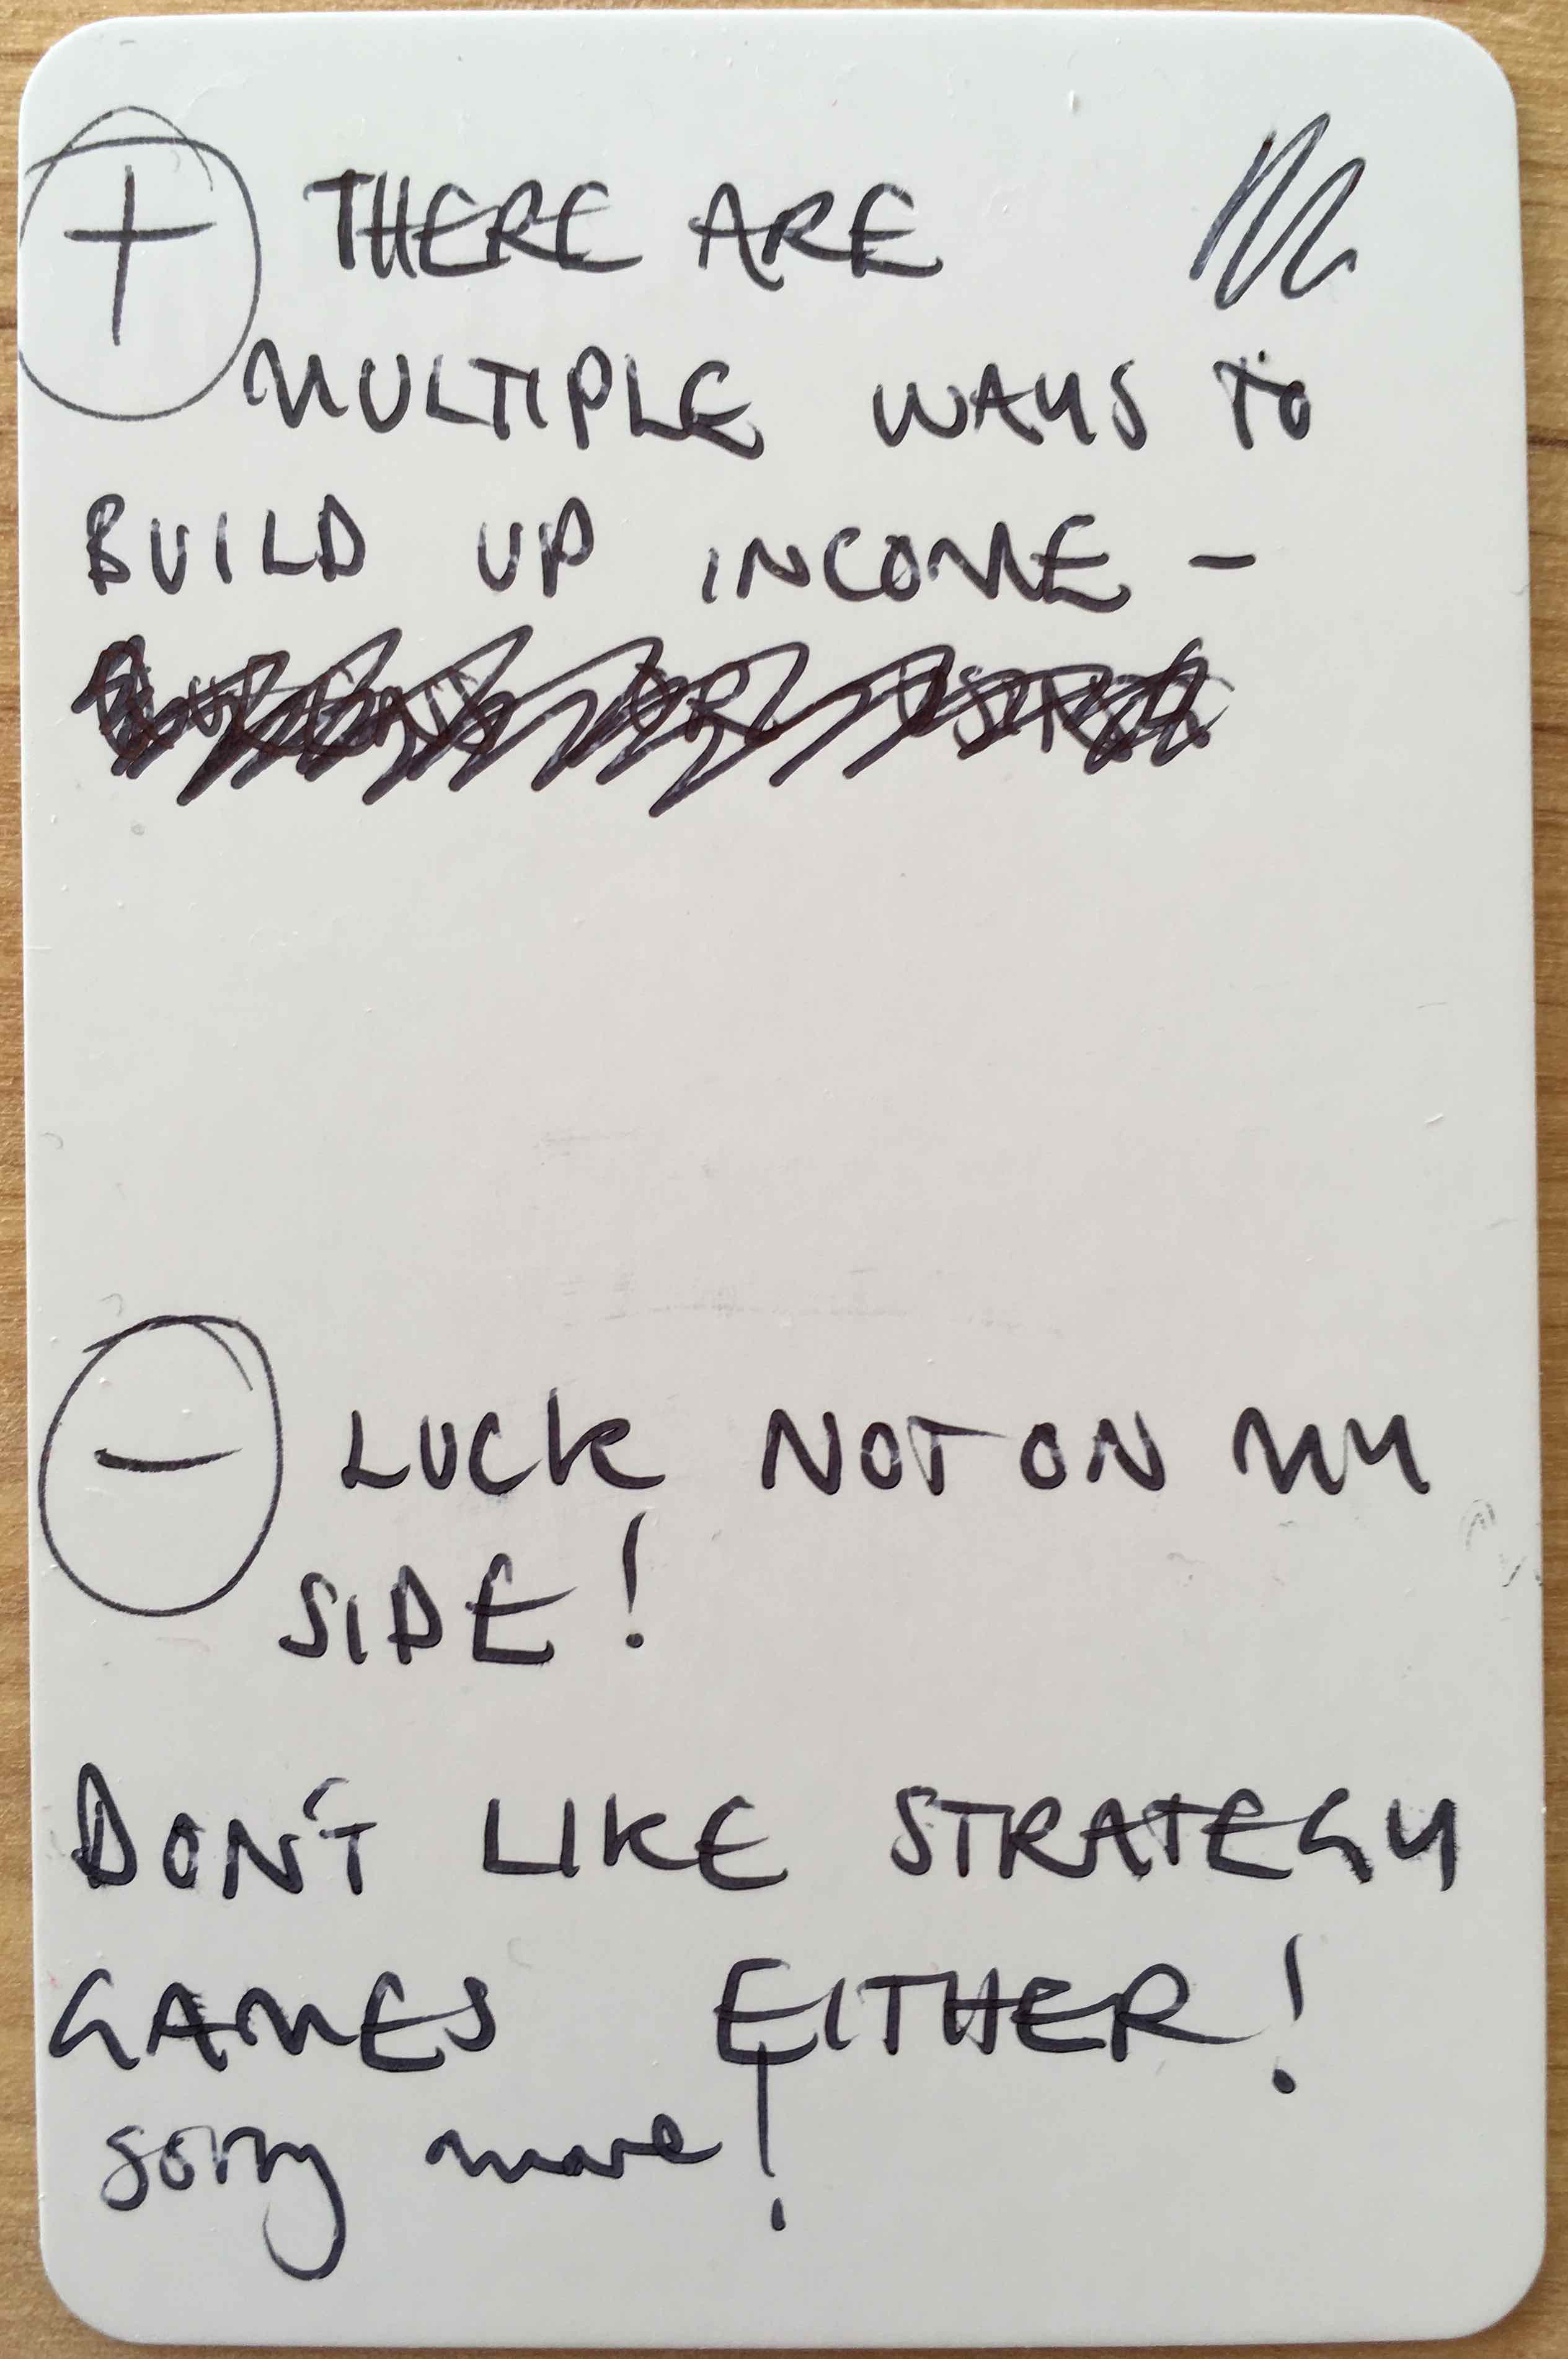 + THERE ARE
MULTIPLE WAYS TO
BUILD UP INCOME -
- LUCK NOT ON MY
SIDE!
DON'T LIKE STRATEGY
GAMES EITHER!
sorry